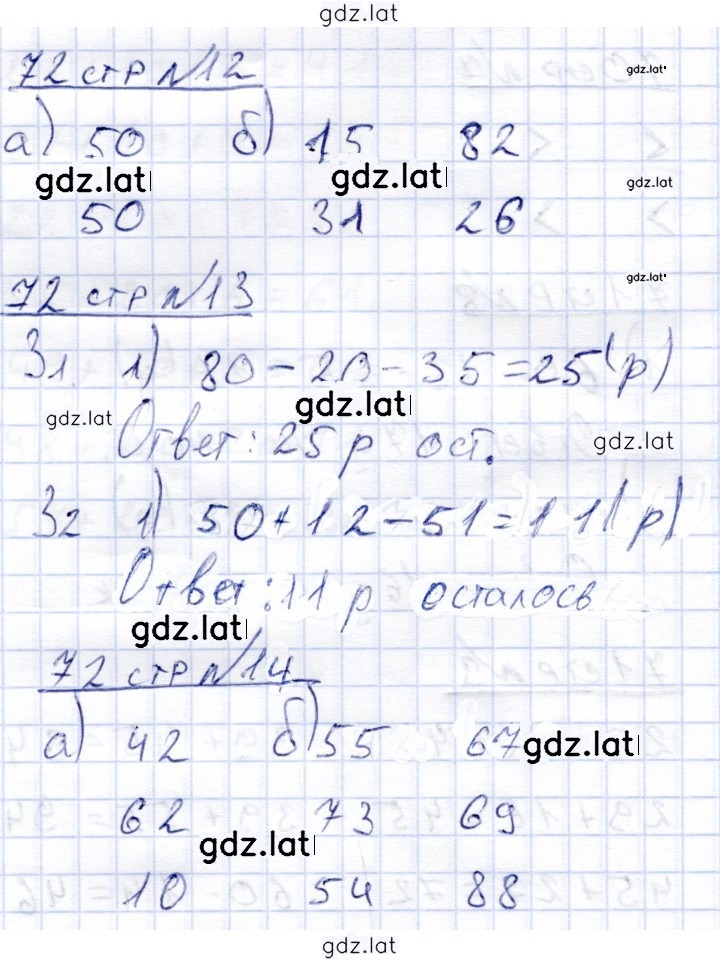 gdz.lat
72 стр №12
gdz.lat
а) 50 б) 15 82
gdz.lat gdz.lat gdz.lat
50 31 26
gdz.lat
72 стр №13
З1. 1) 80 - 20 - 35 = 25 (р)
gdz.lat gdz.lat
Ответ: 25 р ост.
gdz.lat
З2 1) 50 + 12 - 51 = 11 (р)
Ответ: 11 р осталось
gdz.lat
72 стр №14
а) 42 б) 55 67
gdz.lat
62 73 69
gdz.lat
10 54 88
gdz.lat